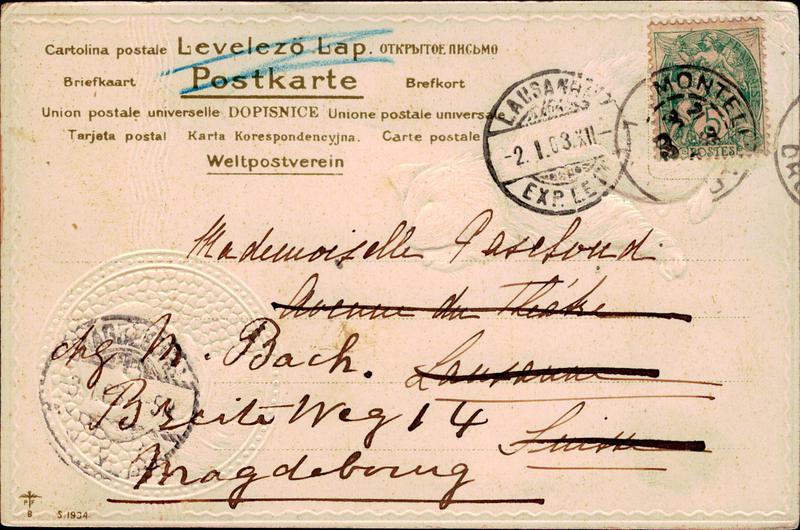 Cartolina postale Levelező Lap. ОТКРЫТОЕ ПИСЬМО
Briefkaart Postkarte Brefkort
Union postale universelle DOPISNICE Unione postale universale
Tarjeta postal Karta Korespondencyjna. Carte postale
Weltpostverein
LAUSANNE
-2. I. 03. XII-
EXP. LETTR
MONTEL
5
POSTES
Mademoiselle
Avenue du Théâtre
chez M. Bach. Lausanne
Breite Weg 14 Suisse
Magdebourg
PF
B S.1934